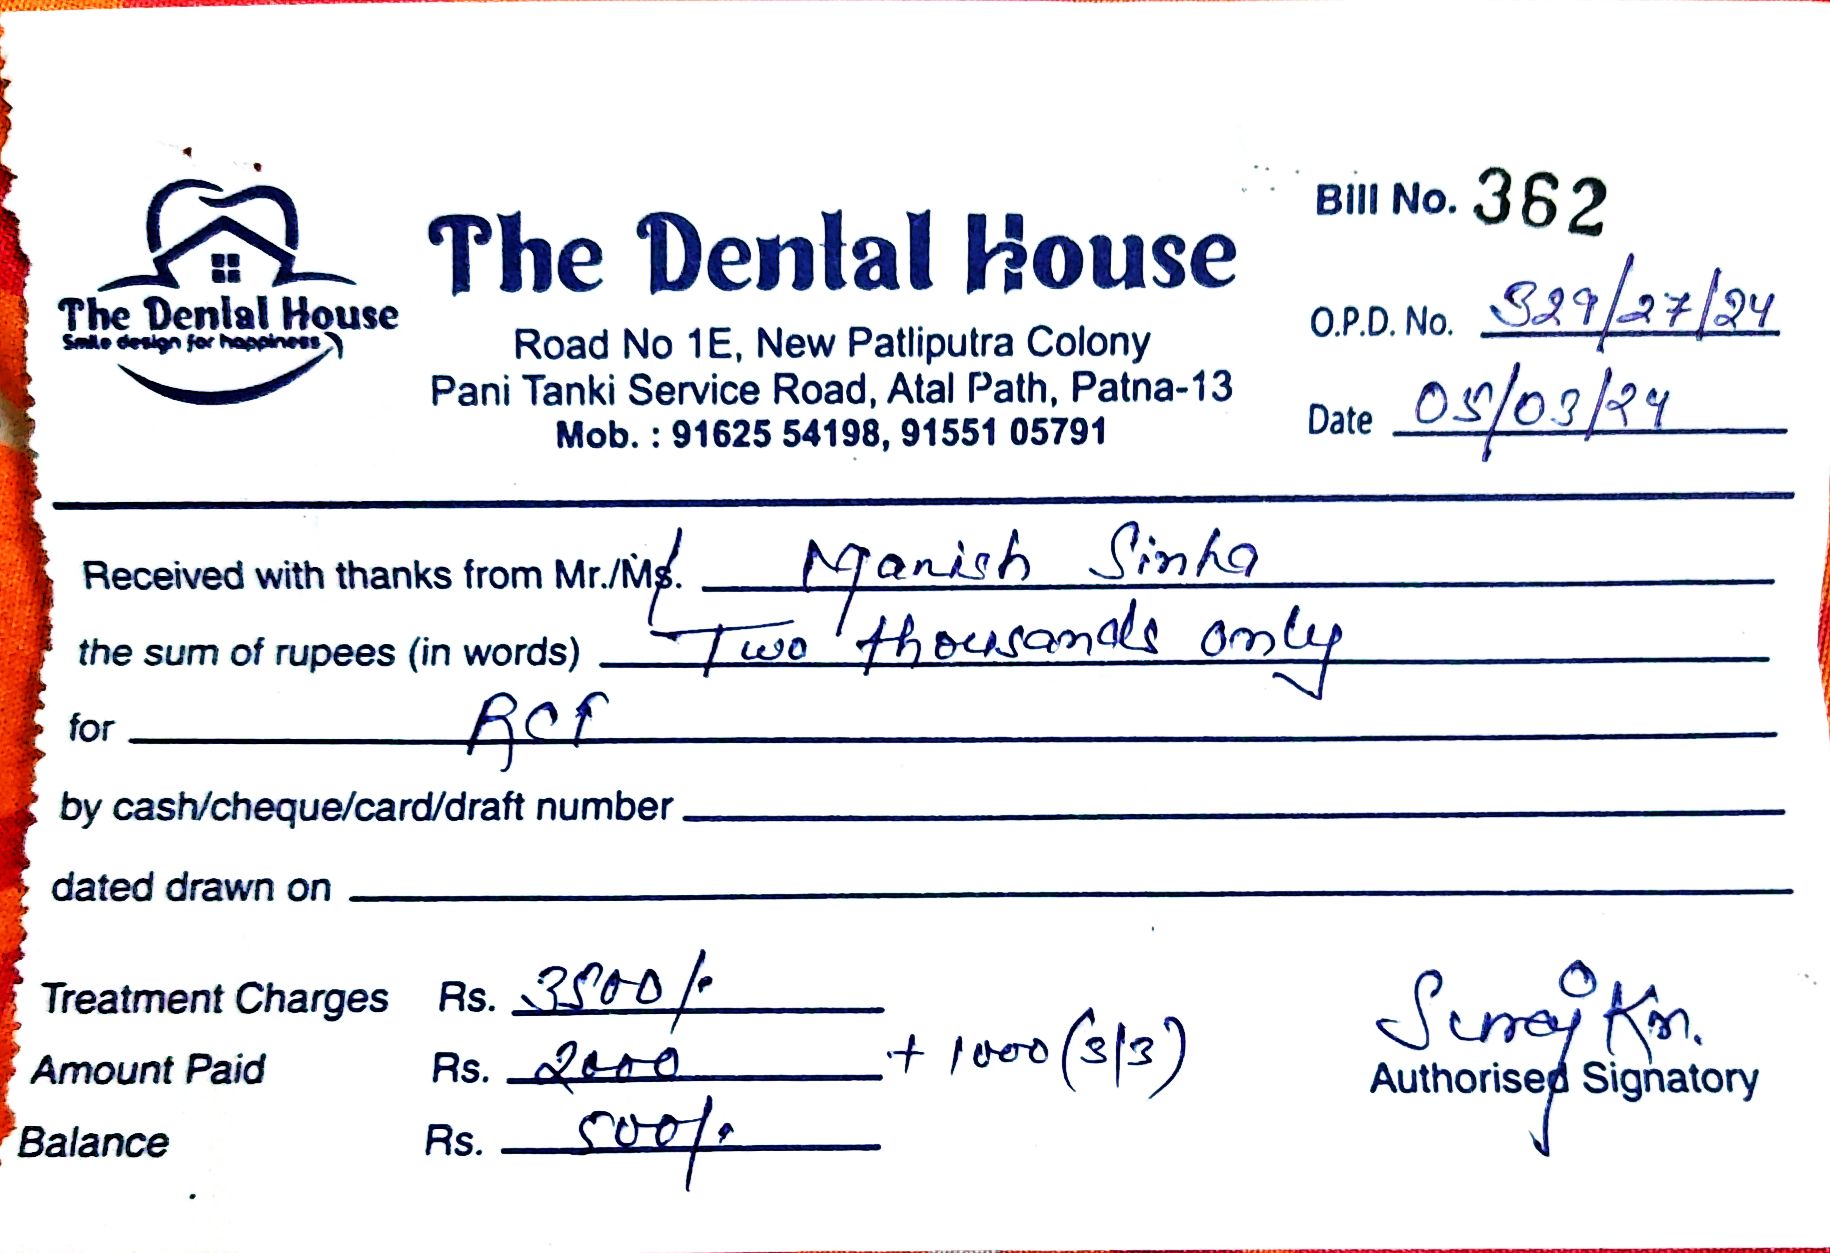 The Dental House
Smile design for happiness
The Dental House
Road No 1E, New Patliputra Colony
Pani Tanki Service Road, Atal Path, Patna-13
Mob. : 91625 54198, 91551 05791
Bill No. 362
O.P.D. No. 329/27/24
Date 05/03/24
Received with thanks from Mr./Ms. Manish Sinha
the sum of rupees (in words) Two thousands only
for RCT
by cash/cheque/card/draft number
dated drawn on
Treatment Charges Rs. 3500/.
Amount Paid Rs. 2000 + 1000 (3/3)
Balance Rs. 500/.
Suraj Kr.
Authorised Signatory